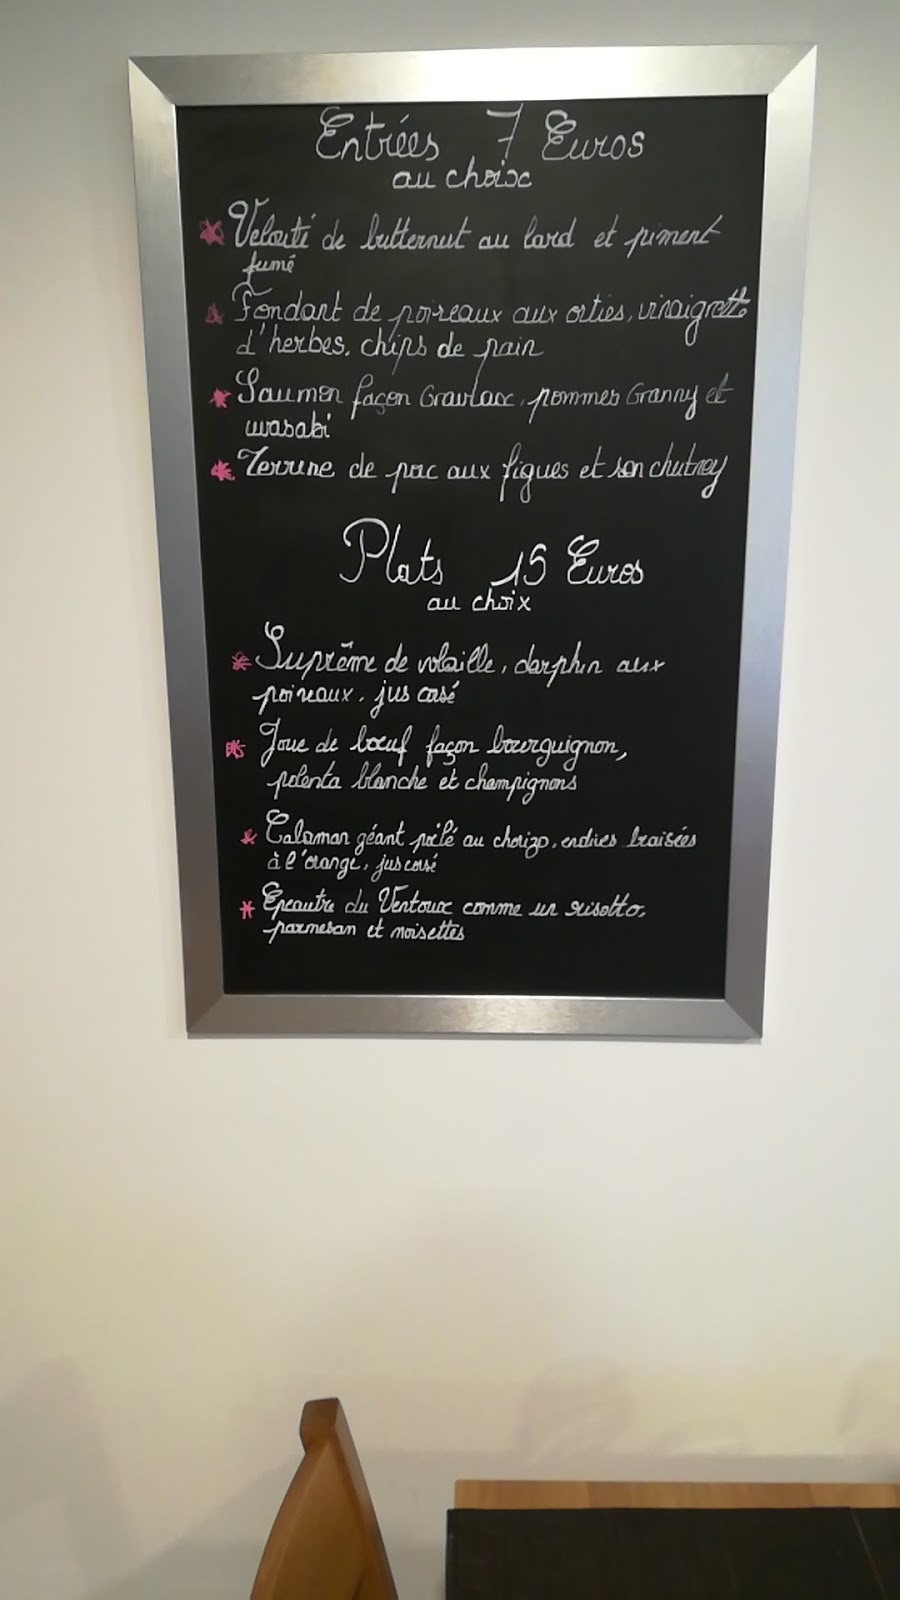 Entrées 7 Euros
au choix
Velouté de butternut au lard et piment
fumé
Fondant de poireaux aux orties, vinaigrette
d'herbes, chips de pain
Saumon façon Gravlax, pommes Granny et
wasabi
Terrine de pac aux figues et son chutney
Plats 15 Euros
au choix
Suprême de volaille, darphin aux
poireaux, jus corsé
Joue de bœuf façon bourguignon,
polenta blanche et champignons
Calamar géant poêlé au chorizo, endives braisées
à l'orange, jus corsé
Epeautre du Ventoux comme un risotto,
parmesan et noisettes